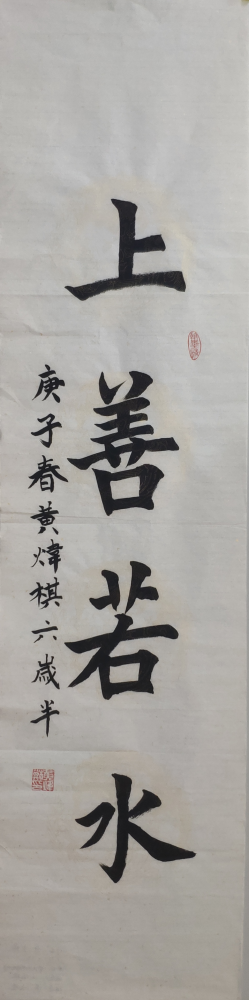 上善若水
庚子春黄炜棋六岁半